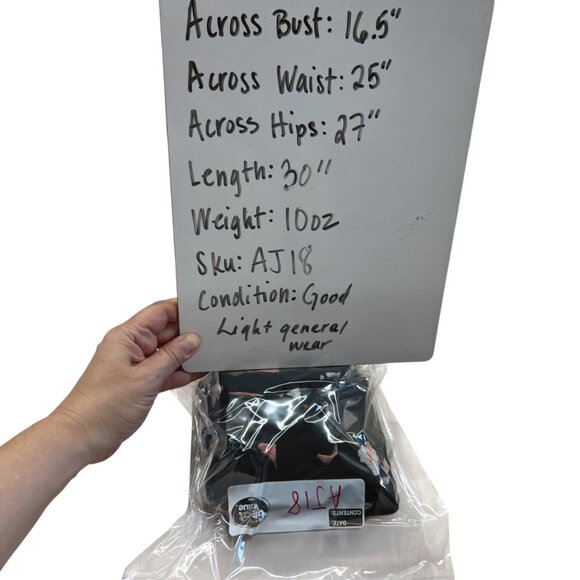 Across Bust: 16.5"
Across Waist: 25"
Across Hips: 27"
Length: 30"
Weight: 10oz
Sku: AJ18
Condition: Good
Light general
wear
great value
AJ18
DATE:
CONTENTS: